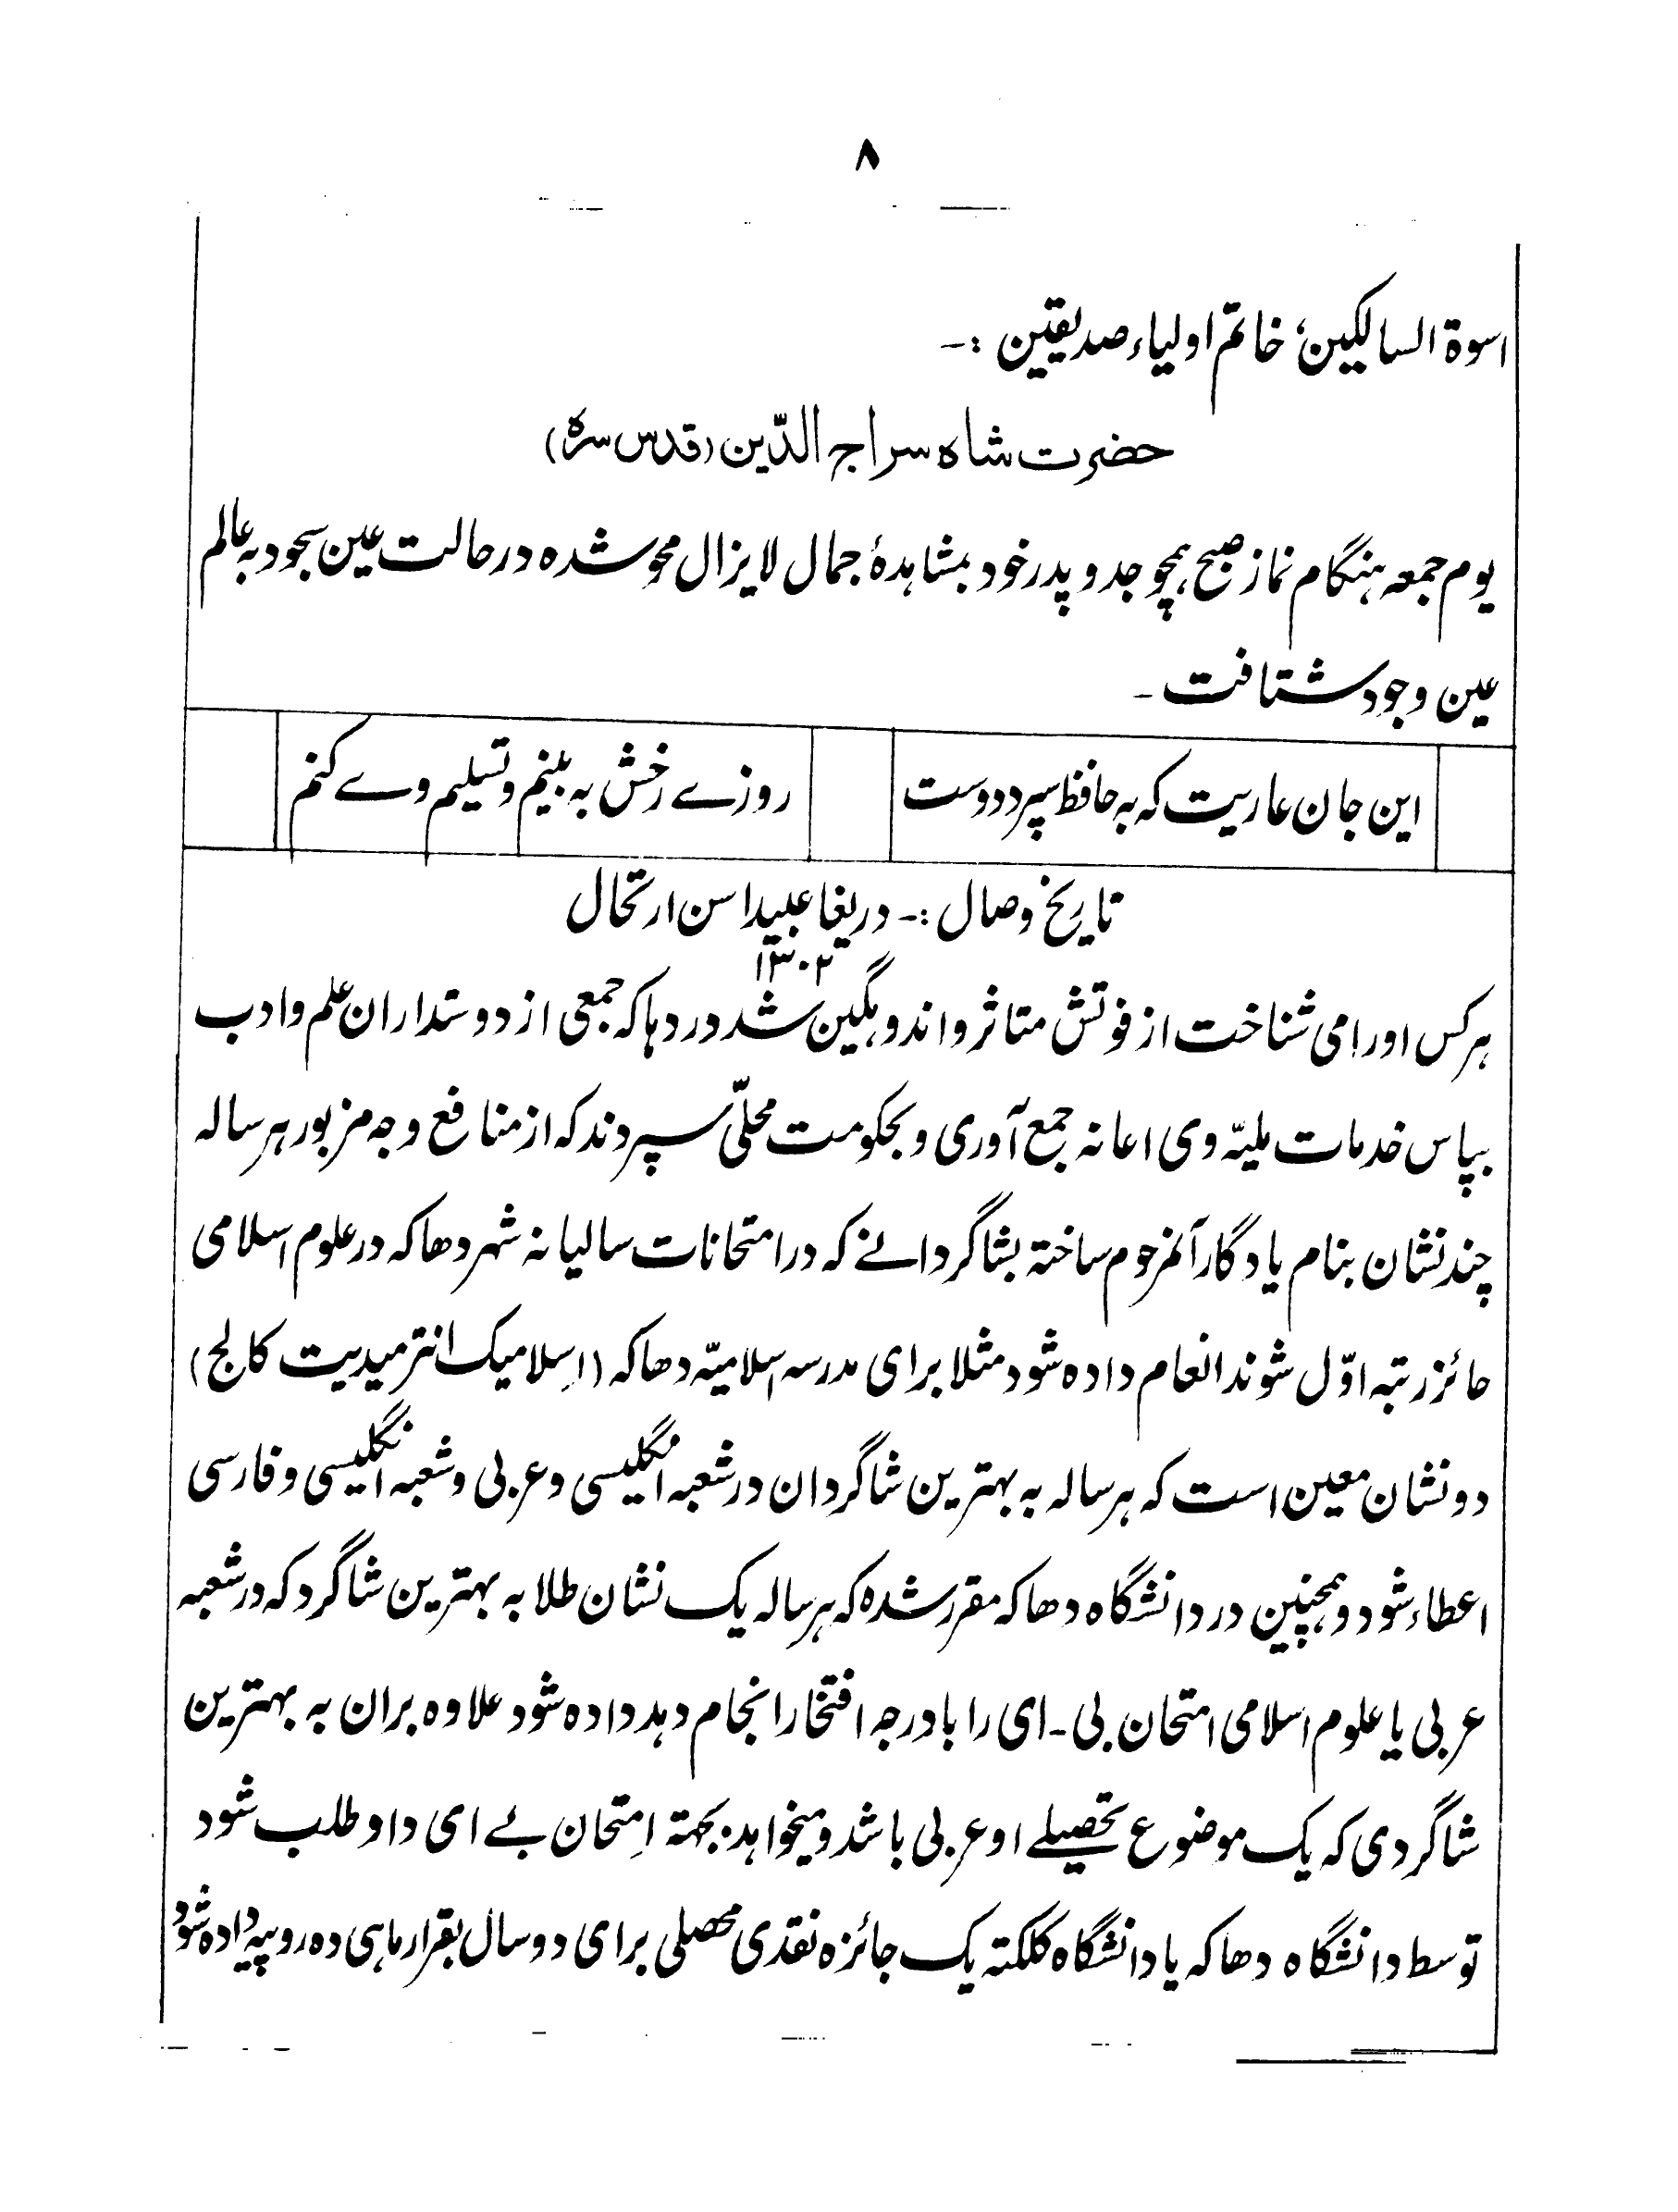 ۸
اسوة السالکین، خاتم اولیاء صدیقین :-
حضرت شاه سراج الدّین (قدس سره)
یوم جمعه هنگام نماز صبح همچو جد و پدر خود بمشاهدۀ جمال لایزال محو شده در حالت عین سجود به عالم
عین وجود شتافت -
این جان عاریت که به حافظ سپرد دوست
روزے رخش به بینم و تسلیم وے کنم
تاریخ وصال :- دریغا عبیدا سن ارتحال
۱۳۰۲
هرکس اورامی شناخت از فوتش متاثر و اندوهگین شد دردها که جمعی از دوستداران علم و ادب
بپاس خدمات ملیّه وی اعانه جمع آوری و بحکومت محلّی سپردند که از منافع وجه مزبور هر ساله
چند نشان بنام یادگار آنمرحوم ساخته بشاگردانے که در امتحانات سالیانه شهر دهاکه در علوم اسلامی
حائز رتبه اوّل شوند انعام داده شود مثلا برای مدرسه اسلامیّه دهاکه (اِسلامیک انترمیدیت کالج)
دو نشان معین است که هرساله به بهترین شاگردان در شعبه انگلیسی و عربی و شعبه انگلیسی و فارسی
اعطاء شود و همچنین در دانشگاه دهاکه مقرر شده که هرساله یک نشان طلا به بهترین شاگرد که در شعبه
عربی یا علوم اسلامی امتحان بی-ای را با درجه افتخار انجام دهد داده شود علاوه بران به بهترین
شاگردی که یک موضوع تحصیلے او عربی باشد و میخواهد بجهتة اِمتحان بے ای داوطلب شود
توسط دانشگاه دهاکه یا دانشگاه کلکته یک جائزه نقدی محصلی برای دو سال بقرار ماهی ده روپیه داده شود